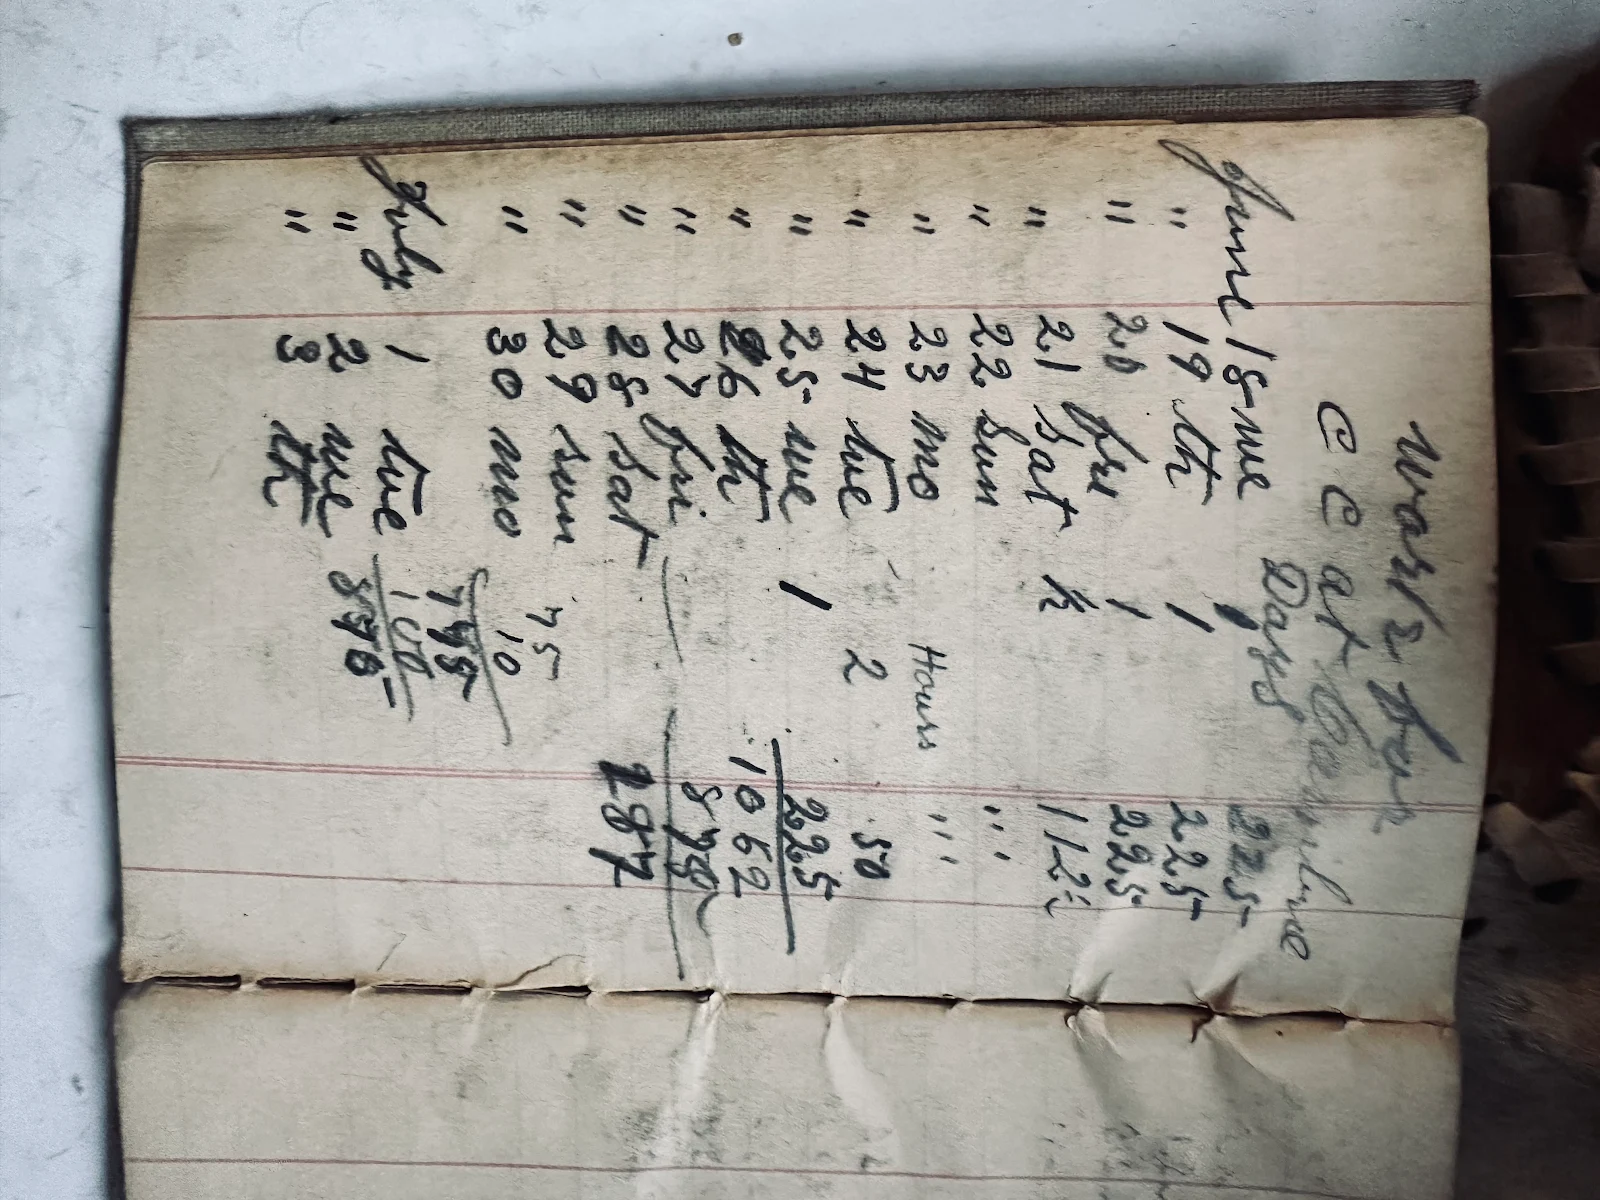 Work for
C C at
Days
June 18 we 1 225
" 19 th 1 225
" 20 fri 1 225
" 21 Sat ½ 112½
" 22 Sun "
" 23 mo Hours "
" 24 tue 2 .50
" 25 we 1 225
" 26 th 1062
" 27 fri
" 28 Sat 287
" 29 sun 75
" 30 mo 10
July 1 tue
" 2 we
" 3 th